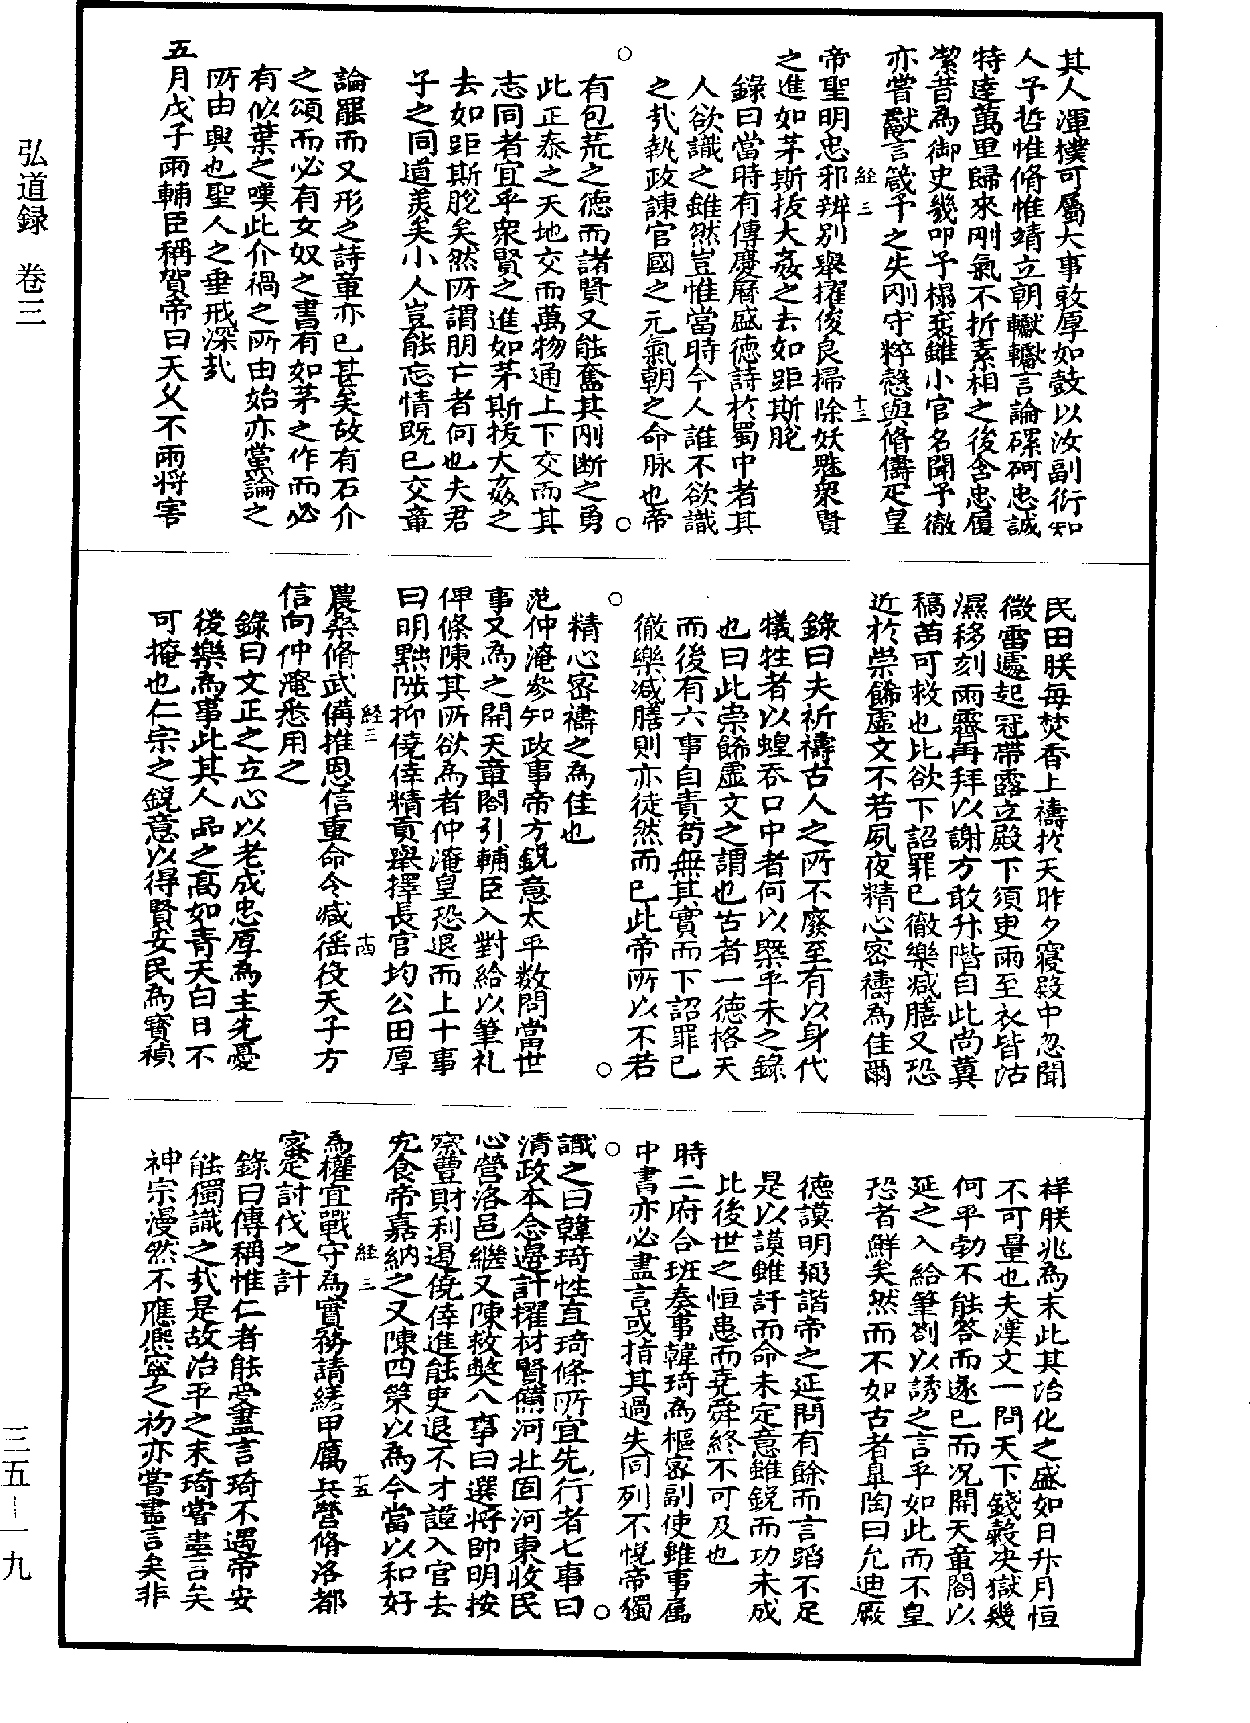 弘道録　卷三
三五－一九
其人渾樸可屬大事敦厚如鼓以汝副衍知
人予哲惟脩惟靖立朝讞讞言論磥砢忠誠
特達萬里歸來剛氣不折素相之後含忠履
潔昔為御史幾叩予榻襄雖小官名聞予徹
亦嘗獻言箴予之失剛守粹慤與脩儔疋皇
経三　十三
帝聖明忠邪辨別舉擢俊良掃除妖魃衆賢
之進如茅斯拔大姦之去如距斯脫
錄曰當時有傳慶曆盛德詩於蜀中者其
人欲識之雖然豈惟當時今人誰不欲識
之㦲執政諫官國之元氣朝之命脉也帝
○　○
有包荒之德而諸賢又能奮其剛斷之勇
此正泰之天地交而萬物通上下交而其
志同者宜乎衆賢之進如茅斯拔大姦之
去如距斯脫矣然所謂朋亡者何也夫君
子之同道羙矣小人豈能忘情既已交章
論罷而又形之詩章亦已甚矣故有石介
之頌而必有女奴之書有如茅之作而必
有似葉之嘆此介禍之所由始亦黨論之
所由興也聖人之垂戒深㦲
五月戊子雨輔臣稱賀帝曰天久不雨將害
民田朕每焚香上禱於天昨夕寢殿中忽聞
微雷遽起冠帶露立殿下須㬰雨至衣皆沾
濕移刻雨霽再拜以謝方敢升階自此尚冀
稿苗可救也比欲下詔罪已徹樂减膳又恐
近於崇餙虛文不若夙夜精心密禱為佳爾
錄曰夫祈禱古人之所不廢至有以身代
犠牲者以蝗吞口中者何以槩乎未之錄
也曰此崇餙虛文之謂也古者一德格天
而後有六事自責茍無其實而下詔罪已
徹樂减膳則亦徒然而已此帝所以不若
○　○
精心密禱之為佳也
范仲淹參知政事帝方銳意太平数問當世
事又為之開天章閣引輔臣入對給以筆札
俾條陳其所欲為者仲淹皇恐退而上十事
曰明黜陟抑僥倖精貢舉擇長官均公田厚
経三　十四
農桑脩武備推恩信重命令减徭役天子方
信向仲淹悉用之
錄曰文正之立心以老成忠厚為主先憂
後樂為事此其人品之髙如青天白日不
可掩也仁宗之銳意以得賢安民為寳禎
祥朕兆為末此其治化之盛如日升月恒
不可量也夫漢文一問天下錢穀决獄幾
何平勃不能答而遂已而况開天章閣以
延之入給筆劄以誘之言乎如此而不皇
恐者鮮矣然而不如古者臯陶曰允迪厥
德謨明弼諧帝之延問有餘而言蹈不足
是以謨雖訏而命未定意雖銳而功未成
此後世之恒患而堯舜終不可及也
時二府合班奏事韓琦為樞密副使雖事屬
中書亦必盡言或指其過失同列不悅帝獨
○　○
識之曰韓琦性直琦條所宜先行者七事曰
清政本念邊計擢材賢備河北固河東收民
心營洛邑繼又陳救獘八事曰選将帥明按
察豐財利遏僥倖進能吏退不才謹入官去
冗食帝嘉納之又陳四策以為今當以和好
経三　十五
為權宜戰守為實務請繕甲厲兵營脩洛都
宻定討伐之計
錄曰傳稱惟仁者能受盡言琦不遇帝安
能獨識之㦲是故治平之末琦嘗盡言矣
神宗漫然不應熈寧之初亦嘗盡言矣非